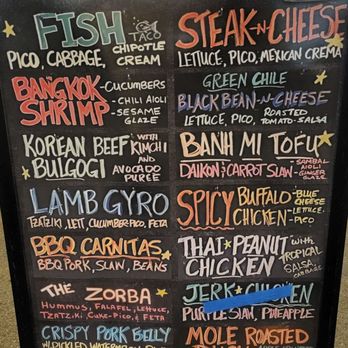 FISH TACO
PICO, CABBAGE, CHIPOTLE CREAM
BANGKOK SHRIMP
-CUCUMBERS
-CHILI AIOLI
-SESAME GLAZE
KOREAN BEEF BULGOGI
WITH KIMCHI AND AVOCADO PUREE
LAMB GYRO
TZATZIKI, LETT, CUCUMBER-PICO, FETA
BBQ CARNITAS
BBQ PORK, SLAW, BEANS
THE ZORBA
HUMMUS, FALAFEL, LETTUCE,
TZATZIKI, CUKE-PICO, & FETA
CRISPY PORK BELLY
W/ PICKLED WATERMELON
STEAK-N-CHEESE
LETTUCE, PICO, MEXICAN CREMA
GREEN CHILE
BLACK BEAN-N-CHEESE
LETTUCE, PICO, ROASTED TOMATO-SALSA
BANH MI TOFU
DAIKON & CARROT SLAW - SAMBAL AIOLI
-GINGER GLAZE
SPICY BUFFALO CHICKEN
-BLUE CHEESE
-LETTUCE
-PICO
THAI PEANUT CHICKEN
WITH TROPICAL SALSA
CABBAGE
JERK CHICKEN
PURPLE SLAW, PINEAPPLE
MOLE ROASTED